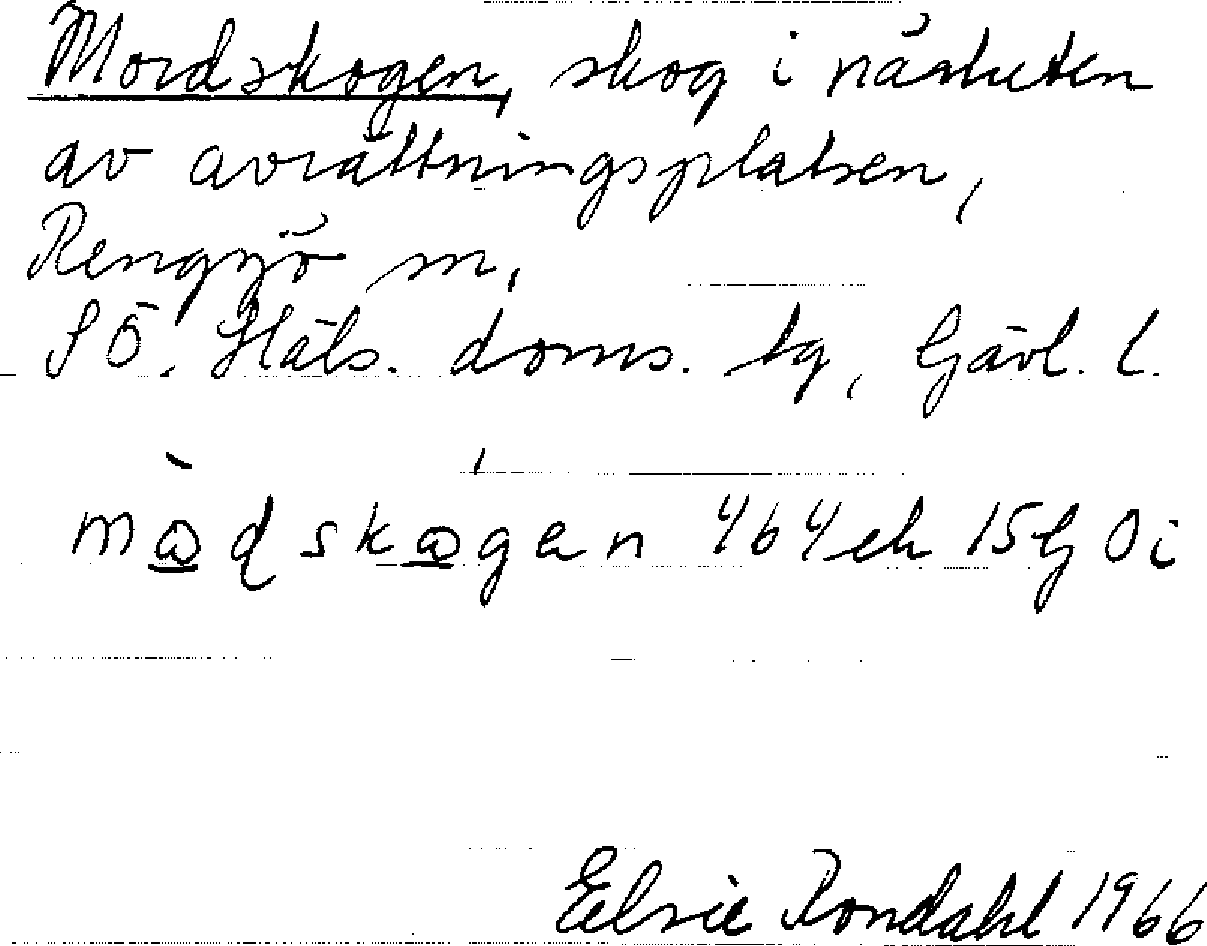 Mordskogen, skog i närheten
av avrättningsplatsen,
Rengsjö sn,
SÖ. Häls. doms. tg, Gävl. l.
mωdskωgen 464 eh 15G 0i
Elsie Rondahl 1966